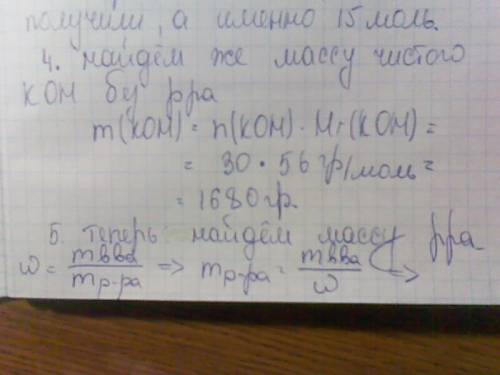 получили, а именно 15 моль.
4. найдём же массу чистого
КОН бу рра
m(КОН) = n(КОН) · Mr(КОН) =
= 30 · 56 гр/моль =
= 1680 гр.
5. теперь найдём массу рра
ω = mвва / mр-ра => mр-ра = mвва / ω =>